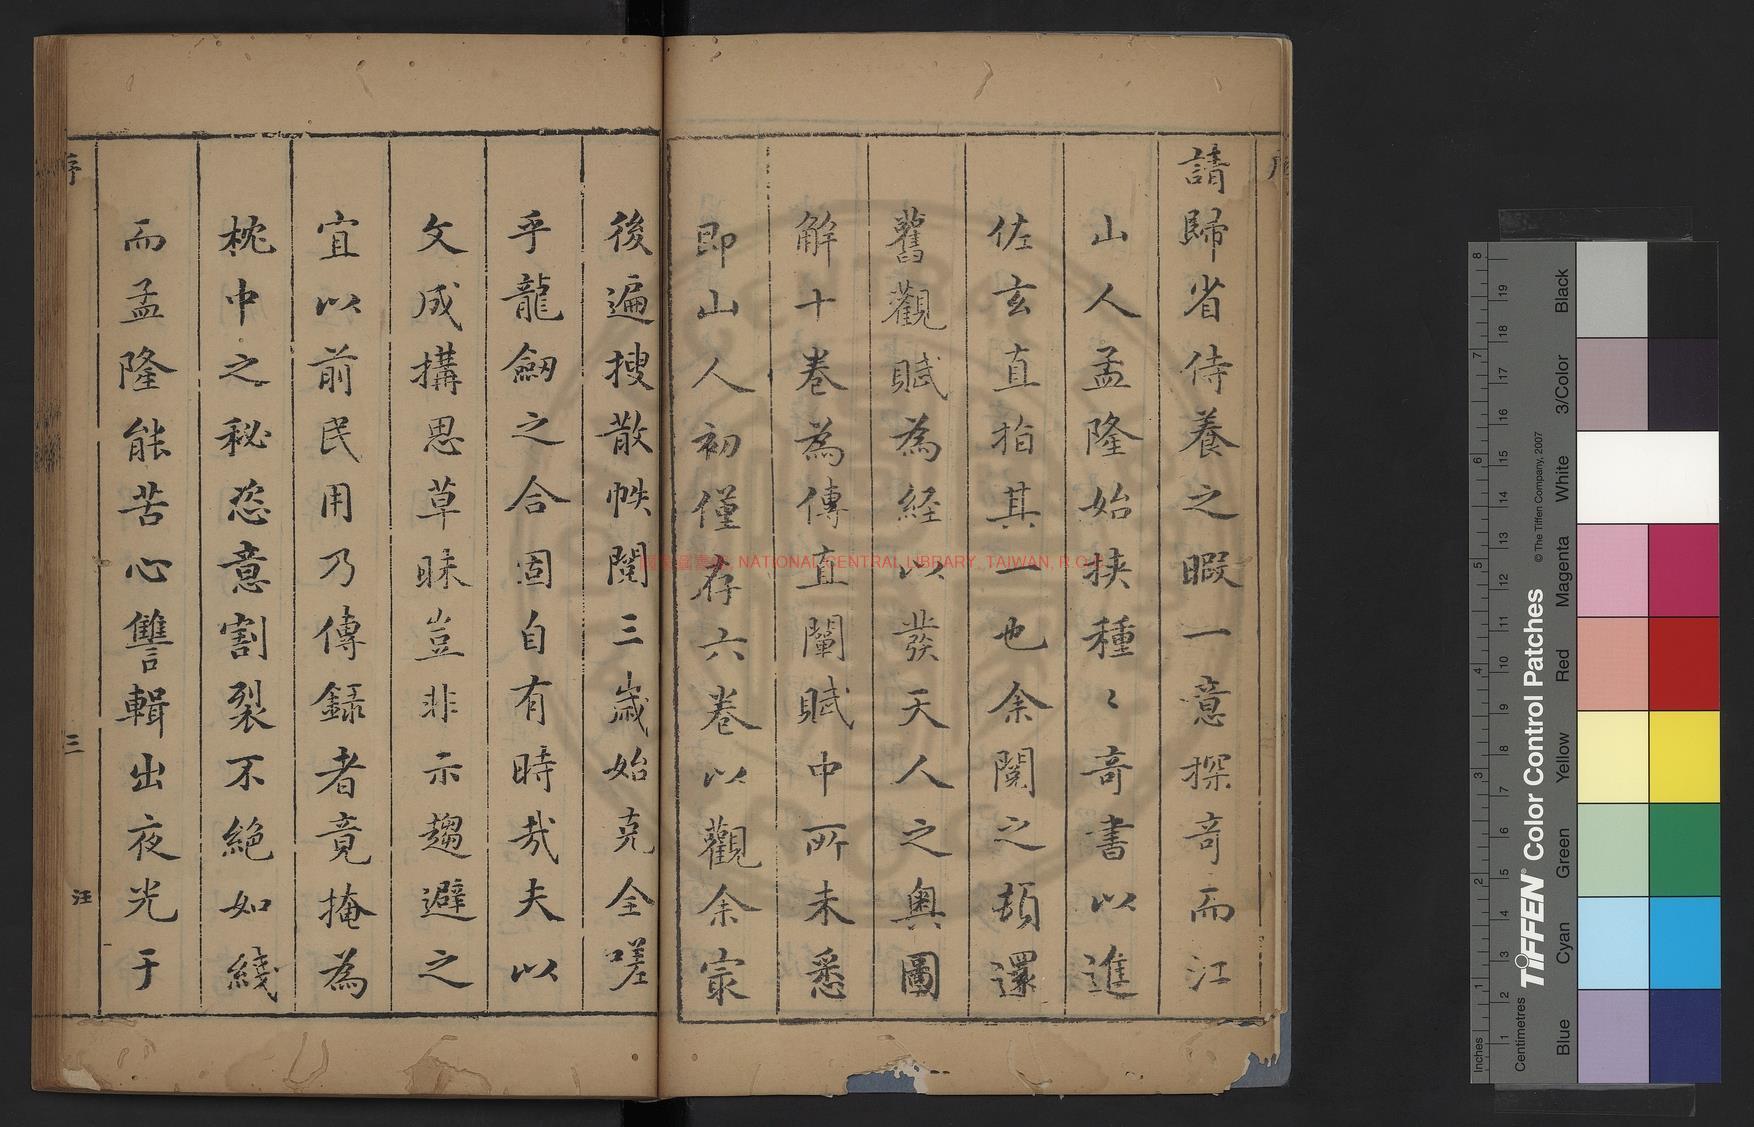 請歸省侍養之暇一意探竒而江
山人孟隆始挟種〻竒書以進
佐玄直指其一也余閱之頓還
舊觀賦為経以發天人之奥圖
解十卷為傳直闡賦中所未悉
即山人初僅存六卷以觀余家
後遍搜散帙閱三嵗始克全嗟
乎龍劔之合固自有時㦲夫以
文成搆思草昧豈非示趨避之
宜以前民用乃傳録者竟掩為
枕中之秘恣意割裂不絶如綫
而孟隆能苦心讐輯出夜光于
序
三
汪
NATIONAL CENTRAL LIBRARY, TAIWAN, R.O.C.
TIFFEN® Color Control Patches
© The Tiffen Company, 2007
Inches
Centimetres
Blue
Cyan
Green
Yellow
Red
Magenta
White
3/Color
Black